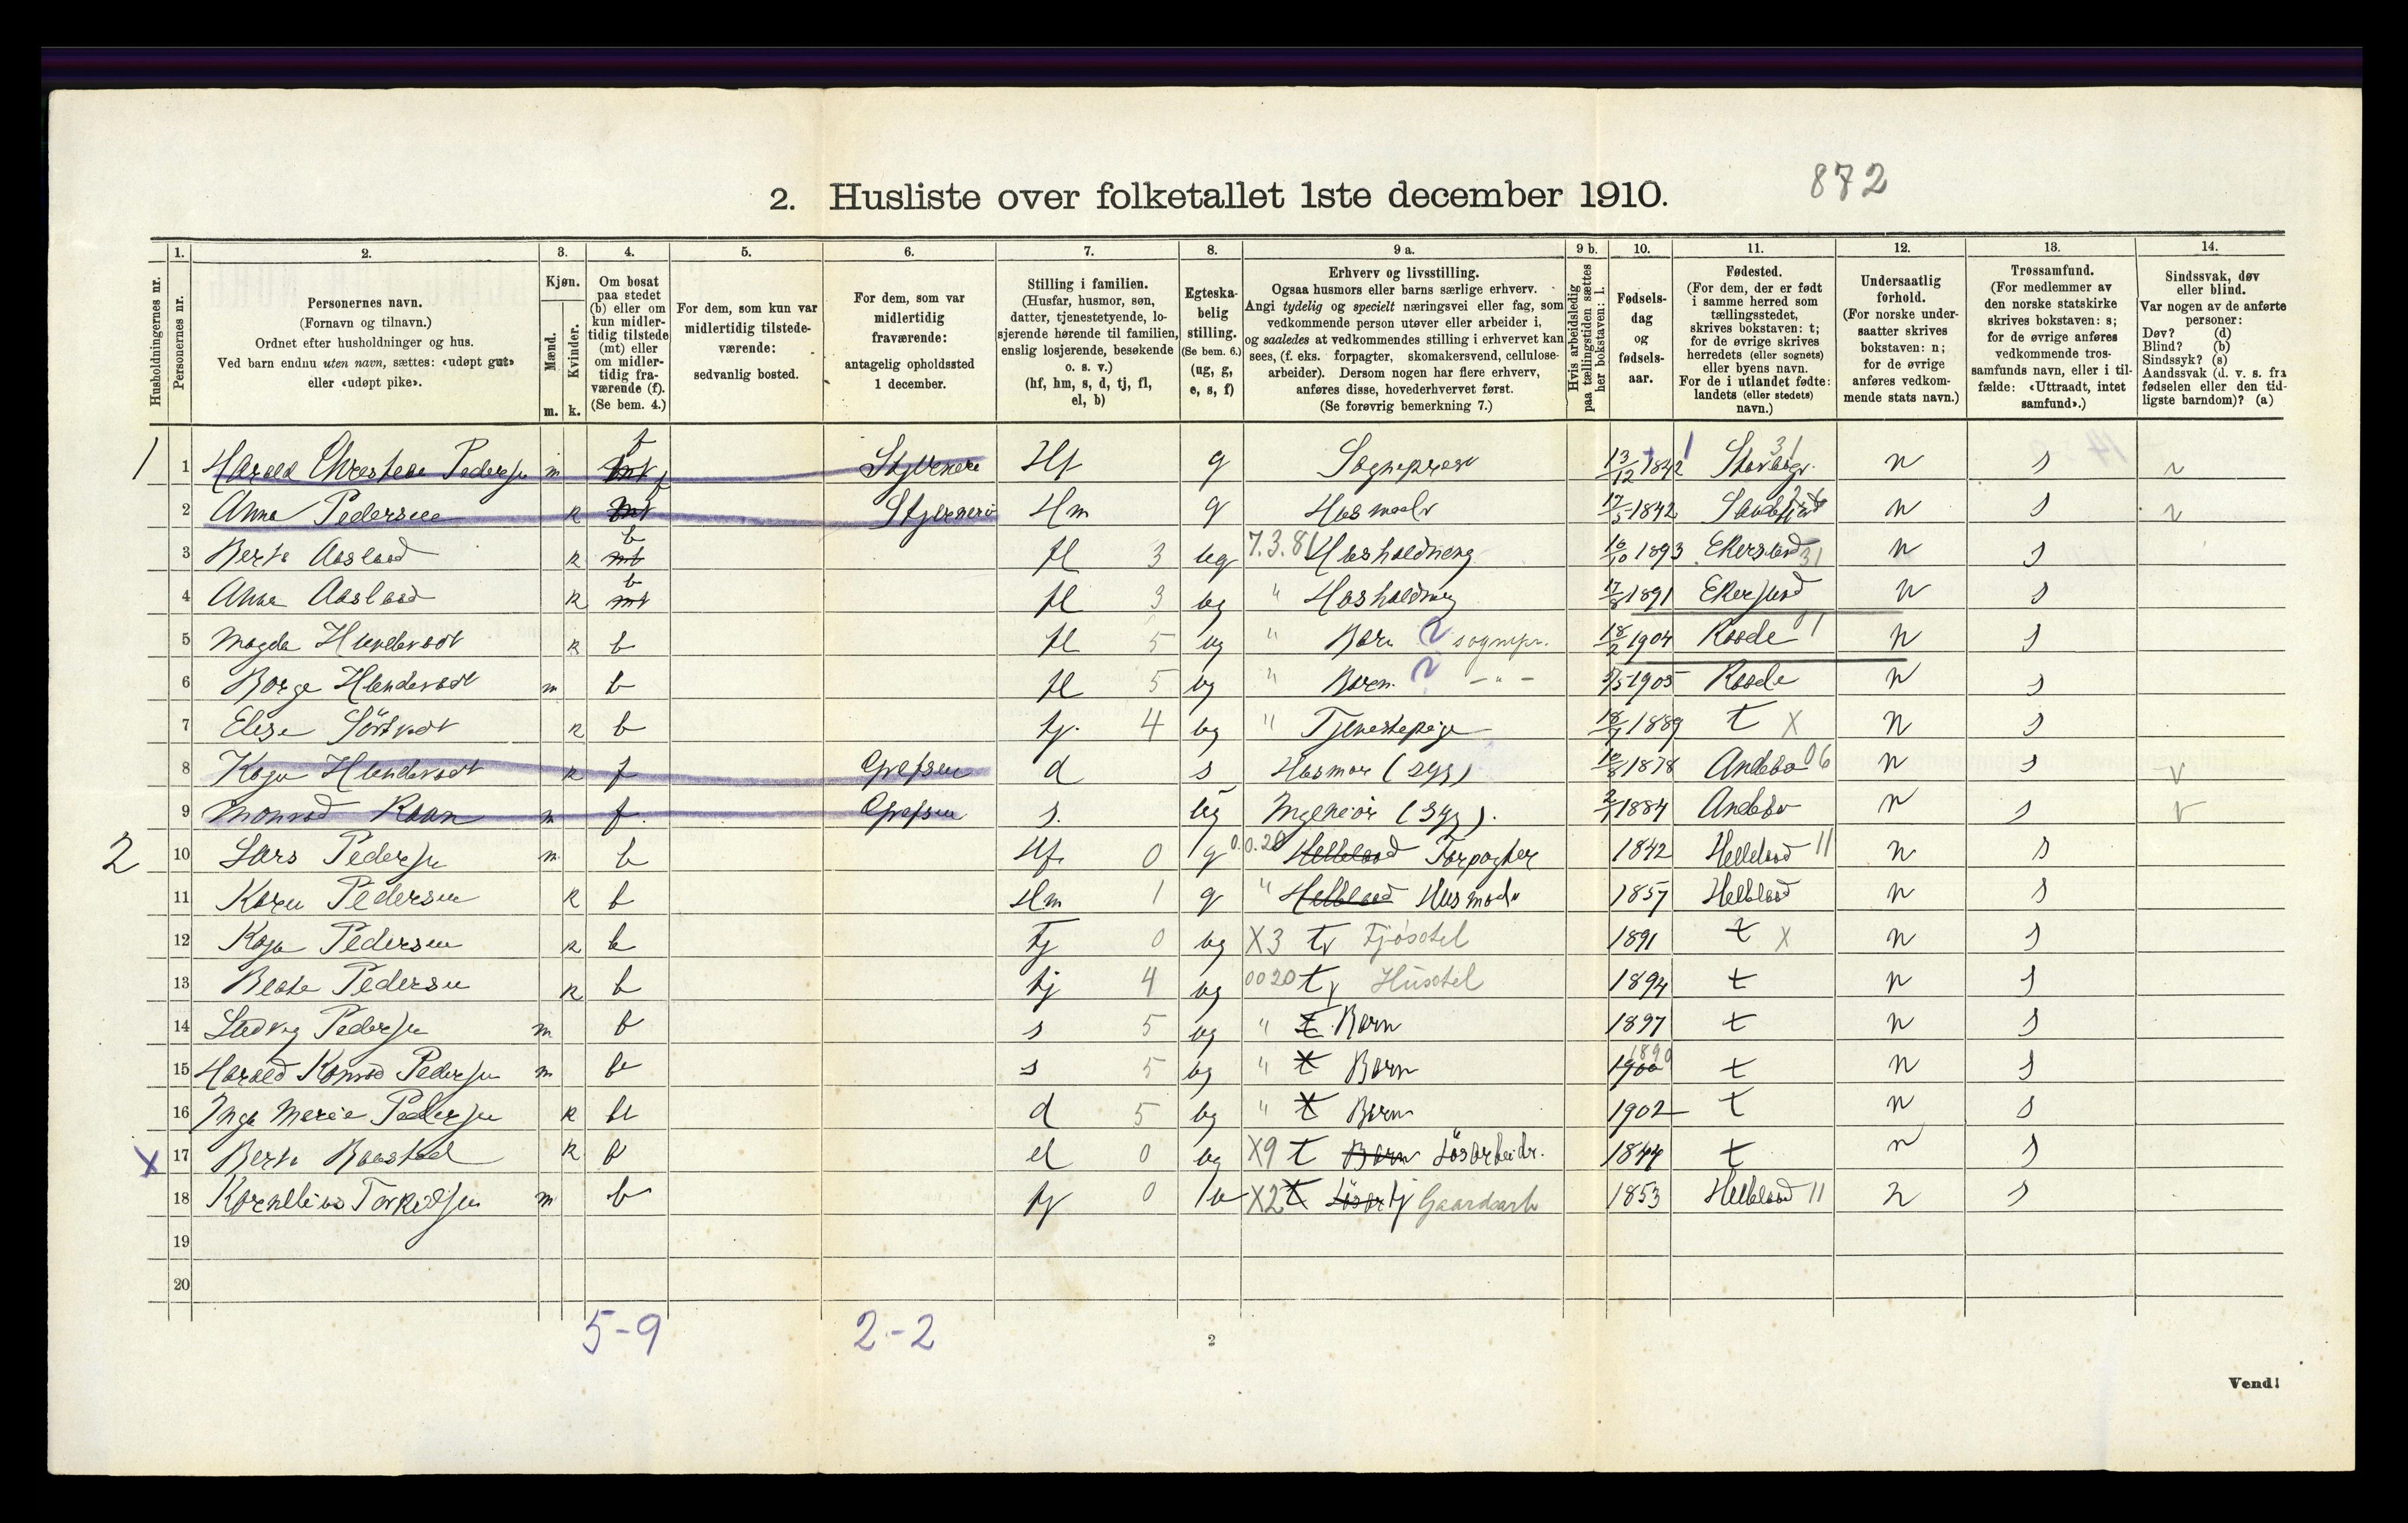 872
2. Husliste over folketallet 1ste december 1910.
Husholdningernes nr.
1. Personernes nr.
2. Personernes navn.
(Fornavn og tilnavn.)
Ordnet efter husholdninger og hus.
Ved barn endnu uten navn, sættes: «udøpt gut»
eller «udøpt pike».
3. Kjøn.
Mænd. Kvinder.
m. k.
4. Om bosat
paa stedet
(b) eller om
kun midler-
tidig tilstede
(mt) eller
om midler-
tidig fra-
værende (f).
(Se bem. 4.)
5. For dem, som kun var
midlertidig tilstede-
værende:
sedvanlig bosted.
6. For dem, som var
midlertidig
fraværende:
antagelig opholdssted
1 december.
7. Stilling i familien.
(Husfar, husmor, søn,
datter, tjenestetyende, lo-
sjerende hørende til familien,
enslig losjerende, besøkende
o. s. v.)
(hf, hm, s, d, tj, fl,
el, b)
8. Egteska-
belig
stilling.
(Se bem. 6.)
(ug, g,
e, s, f)
9 a. Erhverv og livsstilling.
Ogsaa husmors eller barns særlige erhverv.
Angi tydelig og specielt næringsvei eller fag, som
vedkommende person utøver eller arbeider i,
og saaledes at vedkommendes stilling i erhvervet kan
sees, (f. eks. forpagter, skomakersvend, cellulose-
arbeider). Dersom nogen har flere erhverv,
anføres disse, hovederhvervet først.
(Se forøvrig bemerkning 7.)
9 b. Hvis arbeidsledig
paa tællingstiden sættes
her bokstaven: l.
10. Fødsels-
dag
og
fødsels-
aar.
11. Fødested.
(For dem, der er født
i samme herred som
tællingsstedet,
skrives bokstaven: t;
for de øvrige skrives
herredets (eller sognets)
eller byens navn.
For de i utlandet fødte:
landets (eller stedets)
navn.)
12. Undersaatlig
forhold.
(For norske under-
saatter skrives
bokstaven: n;
for de øvrige
anføres vedkom-
mende stats navn.)
13. Trossamfund.
(For medlemmer av
den norske statskirke
skrives bokstaven: s;
for de øvrige anføres
vedkommende tros-
samfunds navn, eller i til-
fælde: «Uttraadt, intet
samfund».)
14. Sindssvak, døv
eller blind.
Var nogen av de anførte
personer:
Døv? (d)
Blind? (b)
Sindssyk? (s)
Aandssvak (d. v. s. fra
fødselen eller den tid-
ligste barndom)? (a)
1 1 Harald Christian Pedersen m f Hf g Sogneprest 13/12 1842 n s
2 Anna Pedersen k Hm g 1842 n s
3 Berta Aasland k b fl 3 ug 7.3.81 Husholdning 16/10 1893 Ekersund 31 n s
4 Anna Aasland k b fl 3 ug " Husholdning 17/8 1891 Ekersund n s
5 Magda Hundevadt k b fl 5 ug " Barn sognepr. 18/2 1904 Raade 01 n s
6 Borge Hundevadt m b fl 5 ug " Barn - " - 1905 Raade n s
7 Elise k b tj. 4 ug " Tjenestepige 1889 t X n s
8 Kaja Hundevadt k f Grefsen d s Husmor (syg) 1878 Andebo 06 n s
9 Monrad m f. Grefsen s. ug Ingeniør (syg). 1884 Andebo n s
2 10 Lars Pedersen m b Hf 0 g 0.0.20 Helleland Forpagter 1842 Helleland 11 n s
11 Karen Pedersen k b Hm 1 g " Helleland Husmoder 1857 Helleland n s
12 Kaja Pedersen k b Tj 0 ug X3 Fjøsstel 1891 t X n s
13 Beate Pedersen k b tj 4 ug 0020 Husstel 1894 t n s
14 Ludvig Pedersen m b s 5 ug " t Barn 1897 t n s
15 Harald Konrad Pedersen m b s 5 ug " t Barn 1900 1890 t n s
16 Inga Marie Pedersen k b d 5 ug " t Barn 1902 t n s
X 17 Berta k b el 0 ug X9 t Barn Løsarbeidr. 1844 t n s
18 Kornelius Torkildsen m b tj 0 X2 t tj Gaardsarb 1853 Helleland 11 n s
19
20
5-9 2-2
2
Vend!